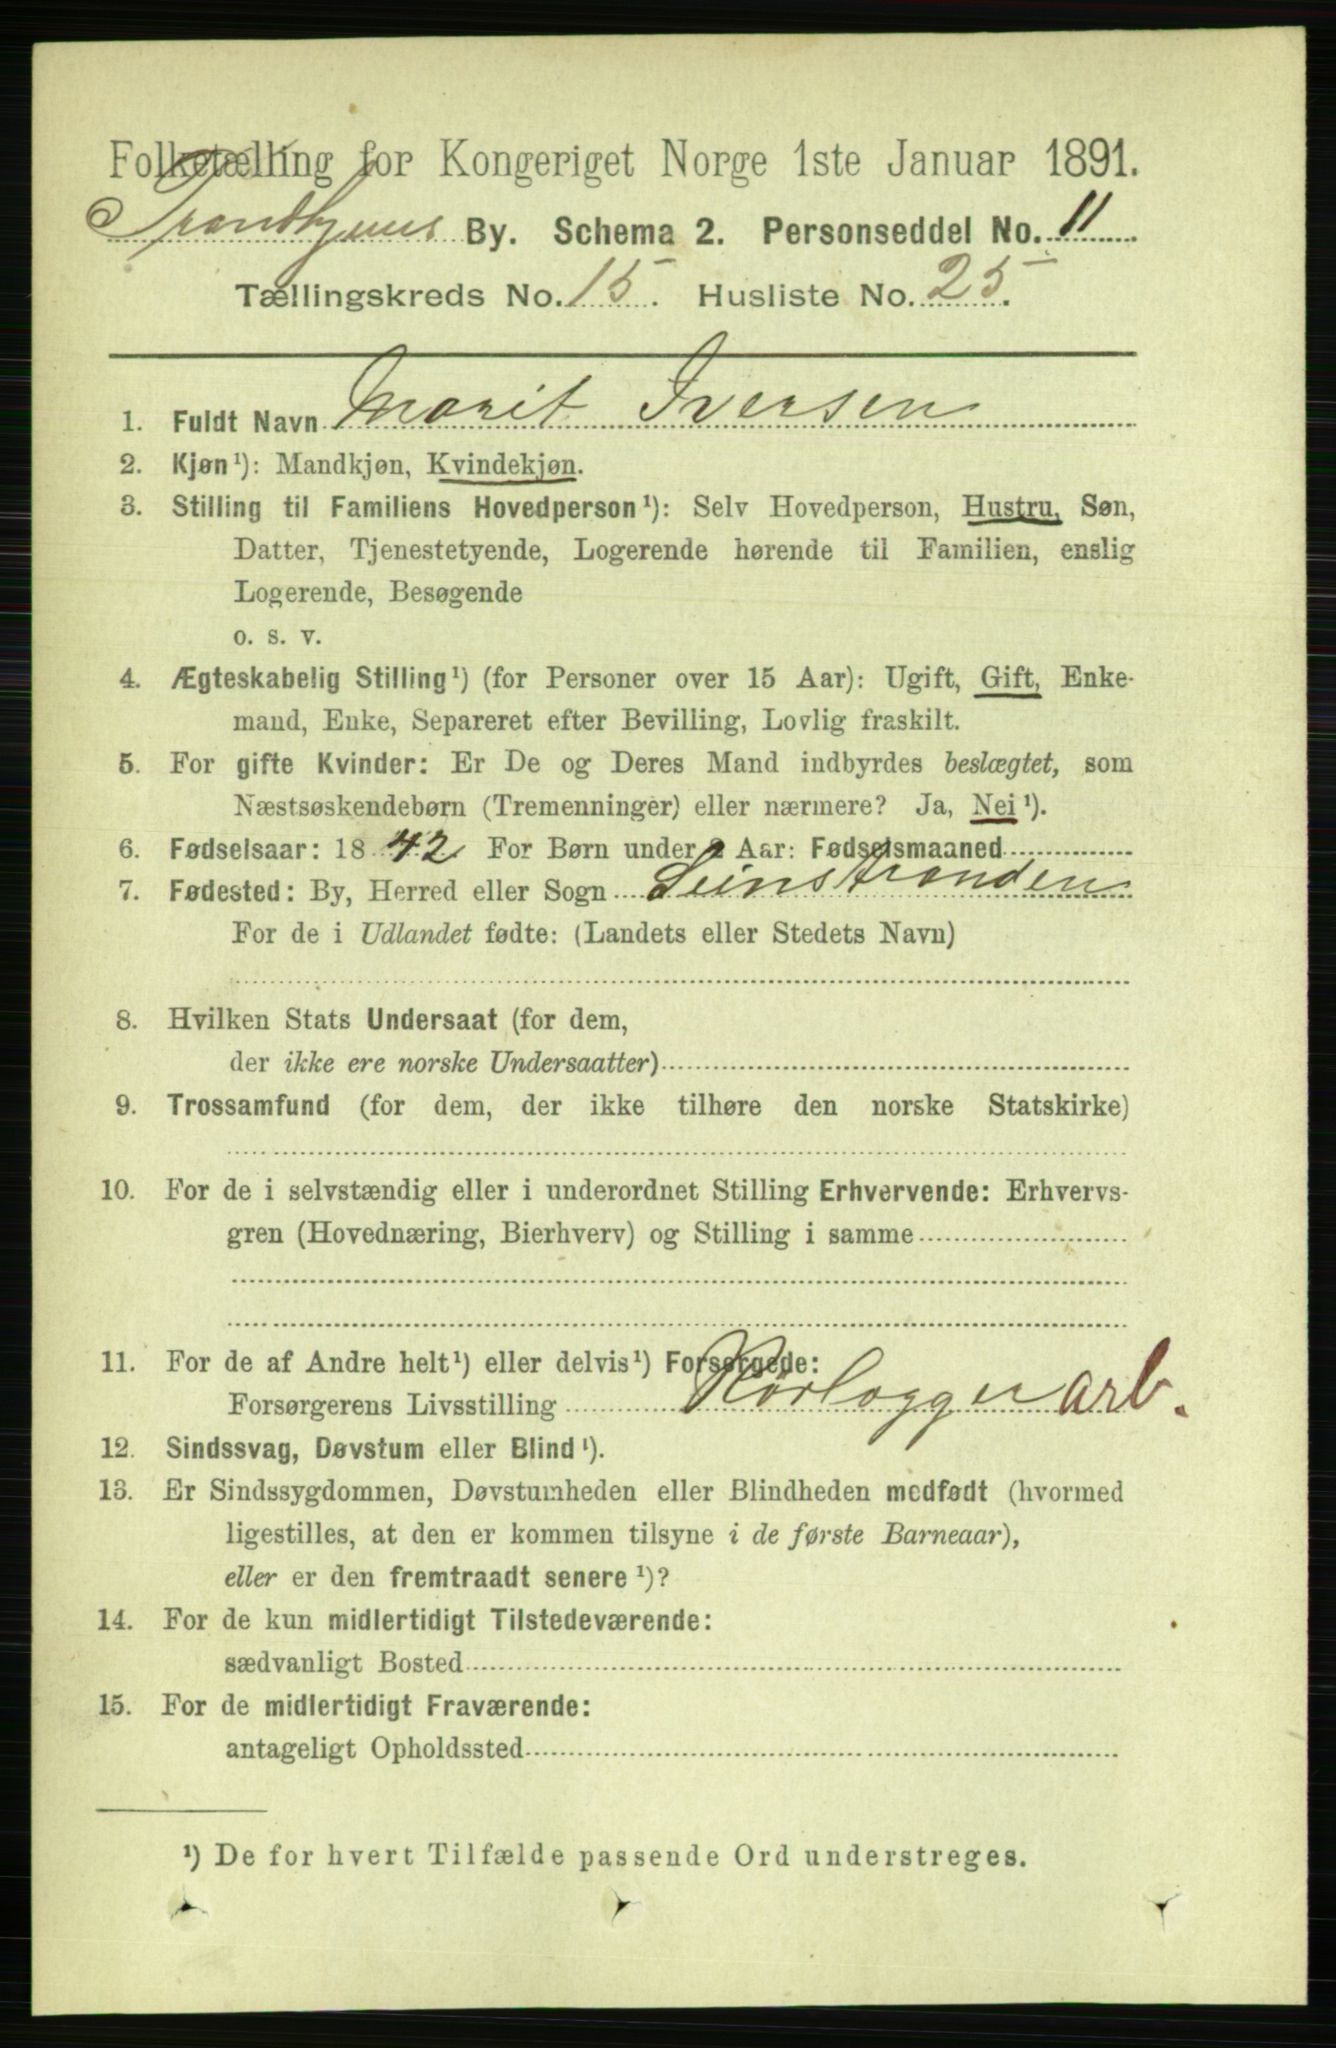 Folketælling for Kongeriget Norge 1ste Januar 1891.
Trondhjems By. Schema 2. Personseddel No. 11
Tællingskreds No. 15. Husliste No. 25.
1. Fuldt Navn Marit Iversen
2. Kjøn¹): Mandkjøn, Kvindekjøn.
3. Stilling til Familiens Hovedperson¹): Selv Hovedperson, Hustru, Søn,
Datter, Tjenestetyende, Logerende hørende til Familien, enslig
Logerende, Besøgende
o. s. v.
4. Ægteskabelig Stilling¹) (for Personer over 15 Aar): Ugift, Gift, Enke-
mand, Enke, Separeret efter Bevilling, Lovlig fraskilt.
5. For gifte Kvinder: Er De og Deres Mand indbyrdes beslægtet, som
Næstsøskendebørn (Tremenninger) eller nærmere? Ja, Nei¹).
6. Fødselsaar: 1842 For Børn under 2 Aar: Fødselsmaaned
7. Fødested: By, Herred eller Sogn Leinstranden
For de i Udlandet fødte: (Landets eller Stedets Navn)
8. Hvilken Stats Undersaat (for dem,
der ikke ere norske Undersaatter)
9. Trossamfund (for dem, der ikke tilhøre den norske Statskirke)
10. For de i selvstændig eller i underordnet Stilling Erhvervende: Erhvervs-
gren (Hovednæring, Bierhverv) og Stilling i samme
11. For de af Andre helt¹) eller delvis¹) Forsørgede:
Forsørgerens Livsstilling Rørlægger arb.
12. Sindssvag, Døvstum eller Blind¹).
13. Er Sindssygdommen, Døvstumheden eller Blindheden medfødt (hvormed
ligestilles, at den er kommen tilsyne i de første Barneaar),
eller er den fremtraadt senere¹)?
14. For de kun midlertidigt Tilstedeværende:
sædvanligt Bosted
15. For de midlertidigt Fraværende:
antageligt Opholdssted
¹) De for hvert Tilfælde passende Ord understreges.